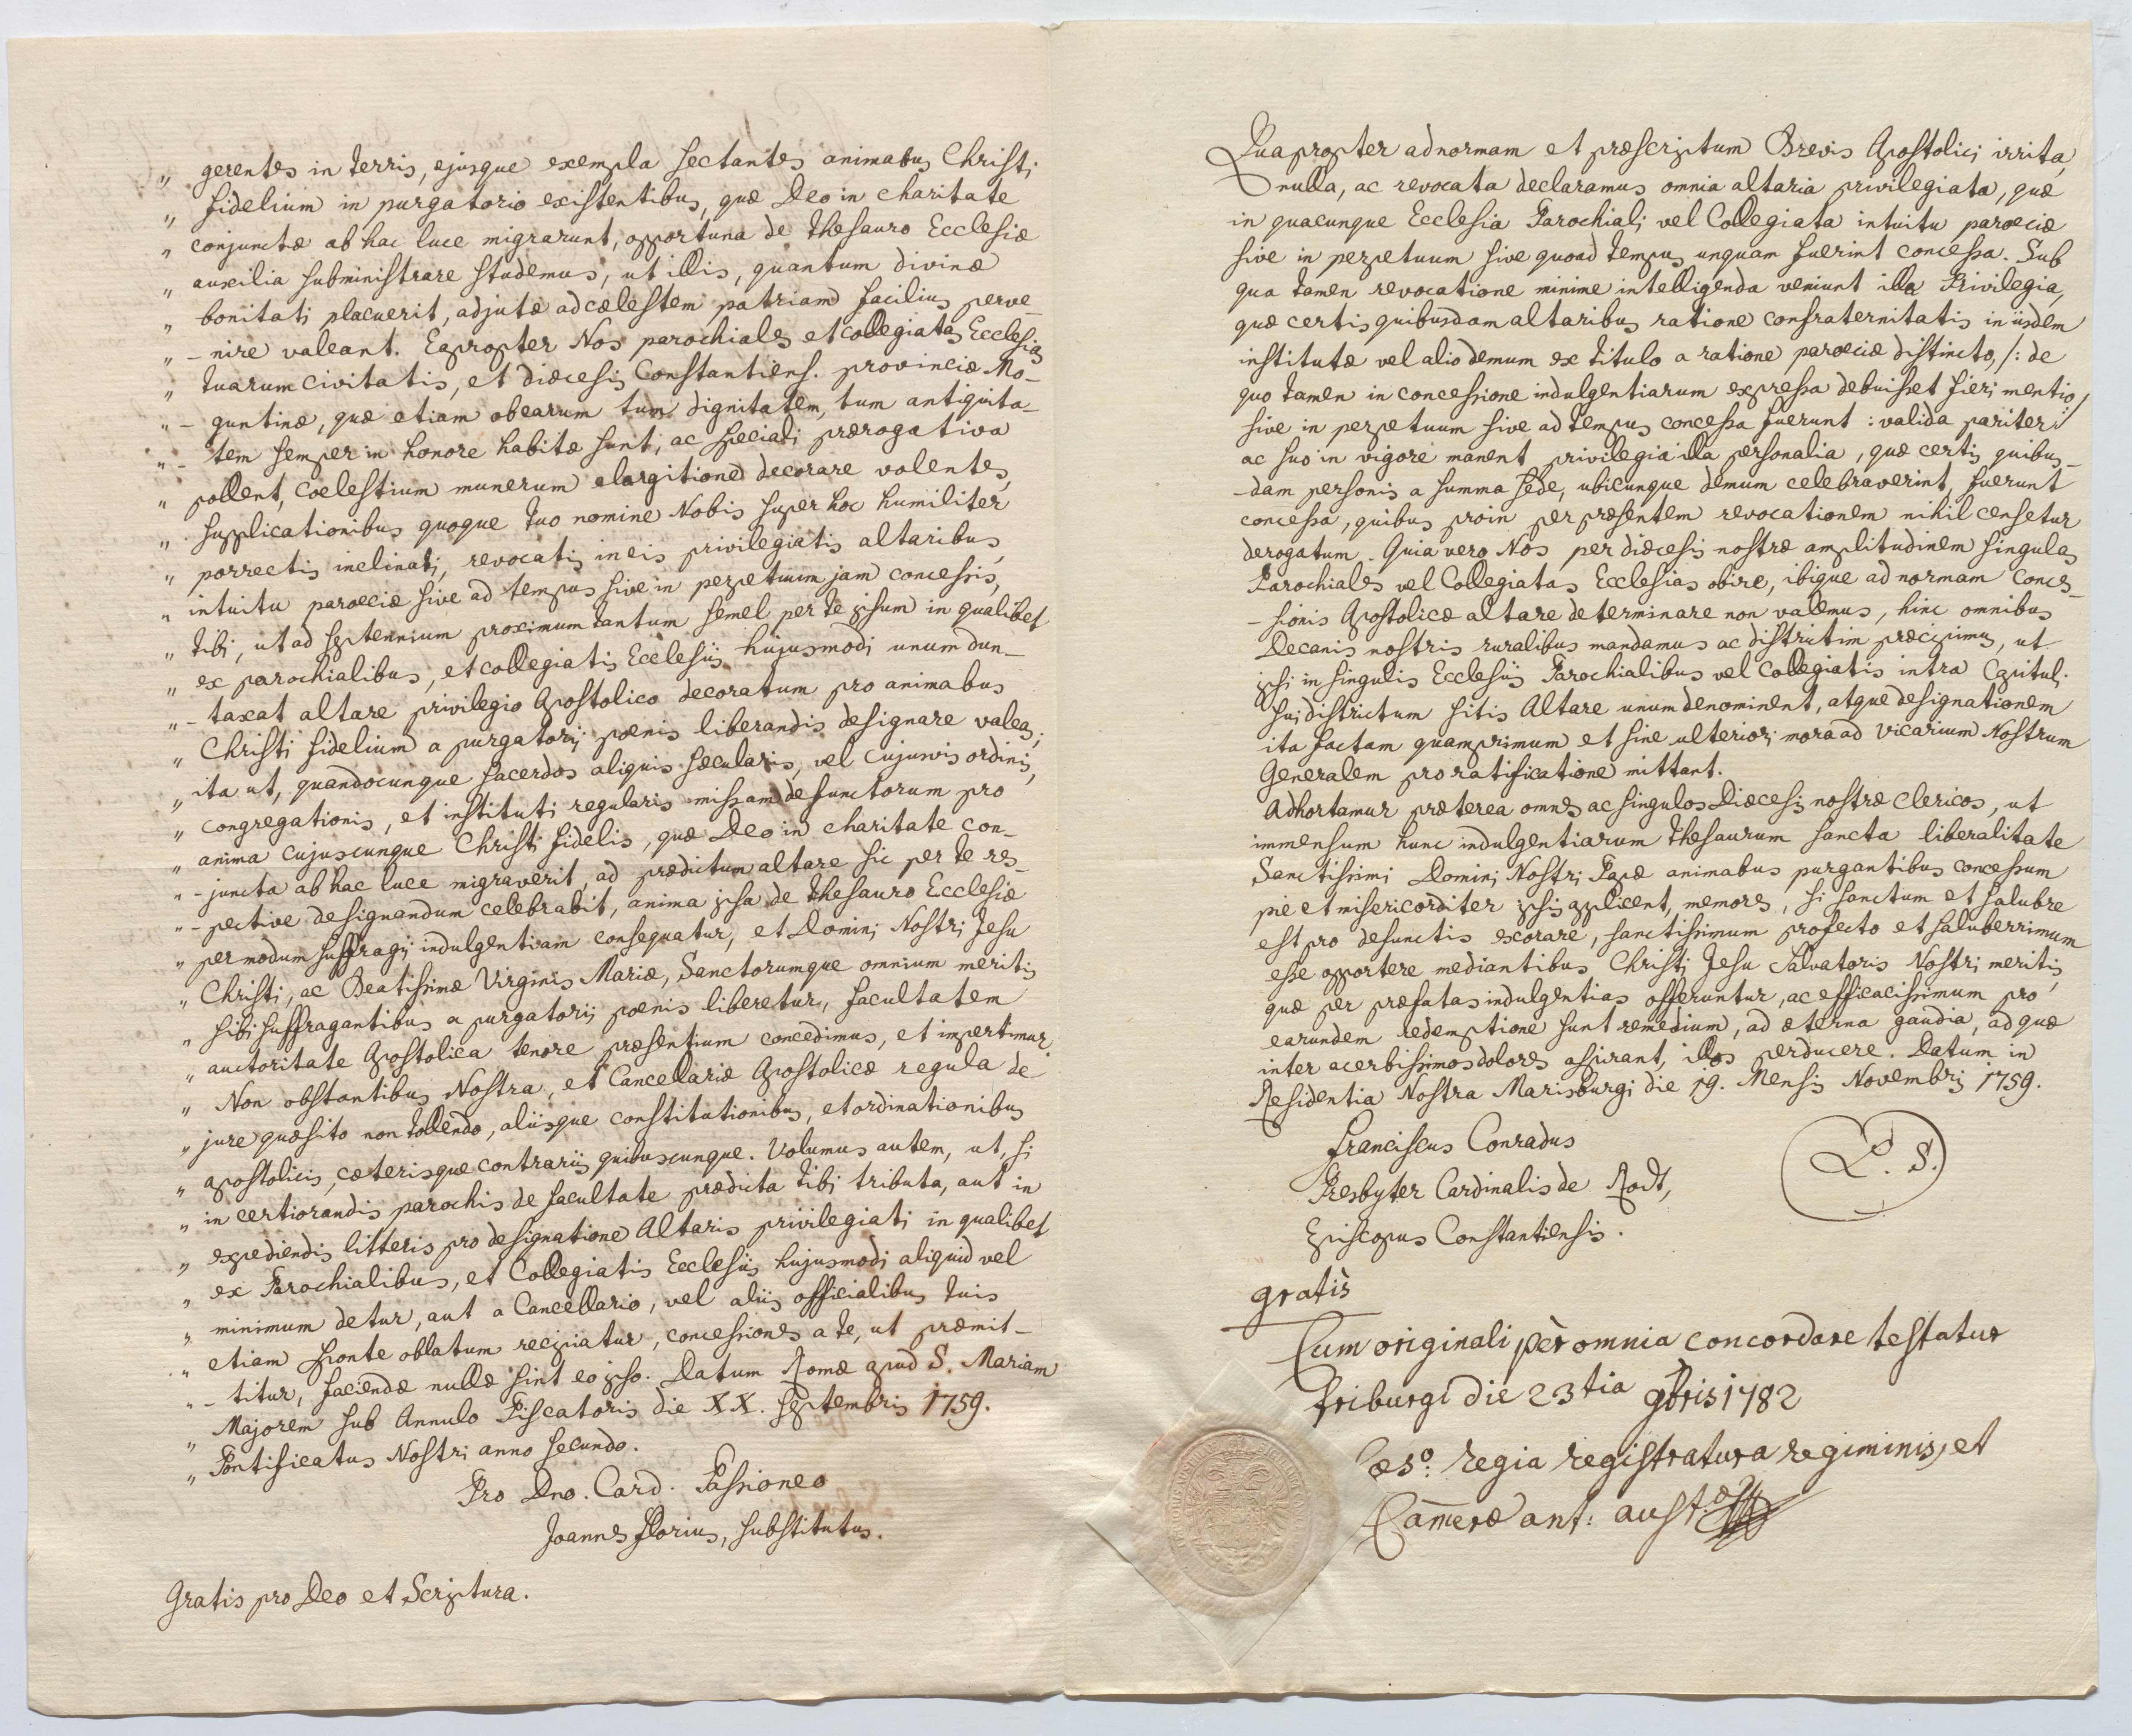 „ gerentes in terris, ejusque exempla sectantes animabus Christi
„ fidelium in purgatorio existentibus, quæ Deo in charitate
„ conjunctæ ab hac luce migrarunt, opportuna de thesauro Ecclesiæ
„ auxilia subministrare studemus, ut illis, quantum divinæ
„ bonitati placuerit, adjutæ ad cælestem patriam facilius perve-
„ - nire valeant. Eapropter Nos parochiales et collegiatas Ecclesias
„ tuarum civitatis, et diæcesis Constantiens. provinciæ Mo-
„ - guntinæ, quæ etiam ob earum tum dignitatem, tum antiquita-
„ - tem semper in honore habitæ sunt, ac speciali prærogativa
„ pollent, coelestium munerum elargitione decorare volentes,
„ supplicationibus quoque tuo nomine Nobis super hoc humiliter
„ porrectis inclinati, revocatis in eis privilegiatis altaribus,
„ intuitu paroeciæ sive ad tempus sive in perpetuum jam concessis,
„ tibi, ut ad septennium proximum tantum semel per te ipsum in qualibet
„ ex parochialibus, et collegiatis Ecclesiis hujusmodi unum dun-
„ - taxat altare privilegio Apostolico decoratum pro animabus
„ Christi fidelium a purgatorij poenis liberandis designare valeas,
„ ita ut, quandocunque sacerdos aliquis sæcularis, vel cujusvis ordinis,
„ congregationis, et instituti regularis missam defunctorum pro
„ anima cujuscunque Christi fidelis, quæ Deo in charitate con-
„ - juncta ab hac luce migraverit, ad prædictum altare sic per te res-
„ - pective designandum celebrabit, anima ipsa de thesauro Ecclesiæ
„ per modum suffragij indulgentiam consequatur, et Domini Nostri Jesu
„ Christi, ac Beatissimæ Virginis Mariæ, Sanctorumque omnium meritis
„ sibi suffragantibus a purgatorij poenis liberetur, facultatem
„ auctoritate Apostolica tenore præsentium concedimus, et impertimur
„ Non obstantibus Nostra, et Cancellariæ Apostolicæ regula de
„ jure quæsito non tollendo, aliisque constitutionibus, et ordinationibus
„ apostolicis, cæterisque contrariis quibuscunque. Volumus autem, ut, si
„ in certiorandis parochis de facultate prædicta tibi tributa, aut in
„ expediendis litteris pro designatione Altaris privilegiati in qualibet
„ ex Parochialibus, et Collegiatis Ecclesiis hujusmodi aliquid vel
„ minimum detur, aut a Cancellario, vel aliis officialibus tuis
„ etiam sponte oblatum recipiatur, concessiones a te, ut præmit-
„ - titur, faciendæ nullæ sint eo ipso. Datum Romæ apud S. Mariam
„ Majorem sub Annulo Piscatoris die XX. Septembris 1759.
„ Pontificatus Nostri anno secundo.
Pro Dno. Card. Passioneo
Joannes Florius, substitutus.
Gratis pro Deo et Scriptura.
Quapropter ad normam et præscriptum Brevis Apostolici irrita,
nulla, ac revocata declaramus omnia altaria privilegiata, quæ
in quacunque Ecclesia Parochiali vel Collegiata intuitu paroeciæ
sive in perpetuum sive quoad tempus unquam fuerint concessa. Sub
qua tamen revocatione minime intelligenda veniunt illa Privilegia,
quæ certis quibusdam altaribus ratione confraternitatis in iisdem
institutæ vel alio demum ex titulo a ratione paroeciæ distincto, /: de
quo tamen in concessione indulgentiarum expressa debuisset fieri mentio,
sive in perpetuum sive ad tempus concessa fuerunt :/ valida pariter
ac suo in vigore manent privilegia illa personalia, quæ certis quibus-
- dam personis a summa Sede, ubicunque demum celebraverint, fuerunt
concessa, quibus proin per præsentem revocationem nihil censetur
derogatum. Quia vero Nos per diæcesis nostræ amplitudinem singulas
Parochiales vel Collegiatas Ecclesias obire, ibique ad normam Conces-
- sionis Apostolicæ altare determinare non valemus, hinc omnibus
Decanis nostris ruralibus mandamus ac districtim præcipimus, ut
ipsi in singulis Ecclesiis Parochialibus vel Collegiatis intra Capituli
sui districtum sitis Altare unum denominent, atque designationem
ita factam quamprimum et sine ulteriori mora ad Vicarium Nostrum
Generalem pro ratificatione mittant.
Adhortamur præterea omnes ac singulos Diæcesis nostræ Clericos, ut
immensum hunc indulgentiarum thesaurum sancta liberalitate
Sanctissimi Domini Nostri Papæ animabus purgantibus concessum
pie et misericorditer ipsis applicent, memores, si sanctum et salubre
est pro defunctis exorare, sanctissimum profecto et saluberrimum
esse opportere mediantibus Christi Jesu Salvatoris Nostri meritis,
quæ per præfatas indulgentias offeruntur, ac efficacissimum pro
earundem redemptione sunt remedium, ad æterna gaudia, ad quæ
inter acerbissimos dolores aspirant, illas perducere. Datum in
Residentia Nostra Marisburgi die 19. Mensis Novembris 1759.
Franciscus Conradus
Presbyter Cardinalis de Rodt,
Episcopus Constantiensis.
L. S.
gratis
Cum originali per omnia concordare testatur
Friburgi die 23tia 9bris 1782
Cæso: regia registratura regiminis, et
Cameræ ant: aust: